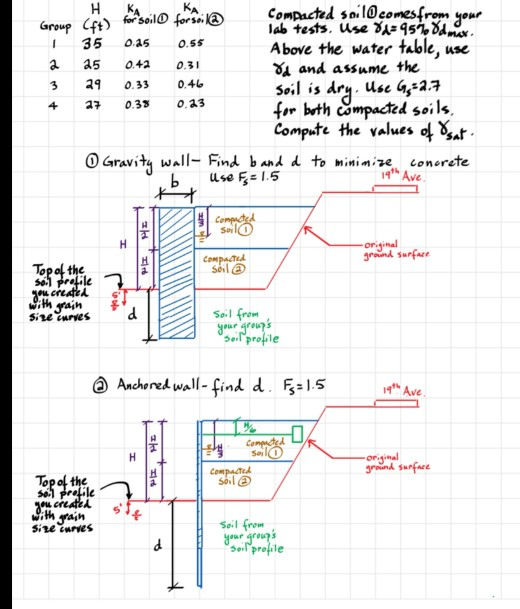 H KA KA
Group (ft) for soil① for soil②
1 35 0.25 0.55
2 25 0.42 0.31
3 29 0.33 0.46
4 27 0.38 0.23
Compacted soil① comes from your
lab tests. Use γd=95% γdmax.
Above the water table, use
γd and assume the
soil is dry. Use Gs=2.7
for both compacted soils.
Compute the values of γsat.
① Gravity wall- Find b and d to minimize concrete
b Use Fs=1.5
19th Ave.
H
H/2
H/2
H/3
Compacted
Soil①
Compacted
Soil②
original
ground surface
Top of the
soil profile
you created
with grain
size curves
d
Soil from
your group's
soil profile
② Anchored wall- find d. Fs=1.5
19th Ave.
H
H/2
H/2
H/3
H/6
Compacted
Soil①
Compacted
Soil②
original
ground surface
Top of the
soil profile
you created
with grain
size curves
5'
d
Soil from
your group's
soil profile